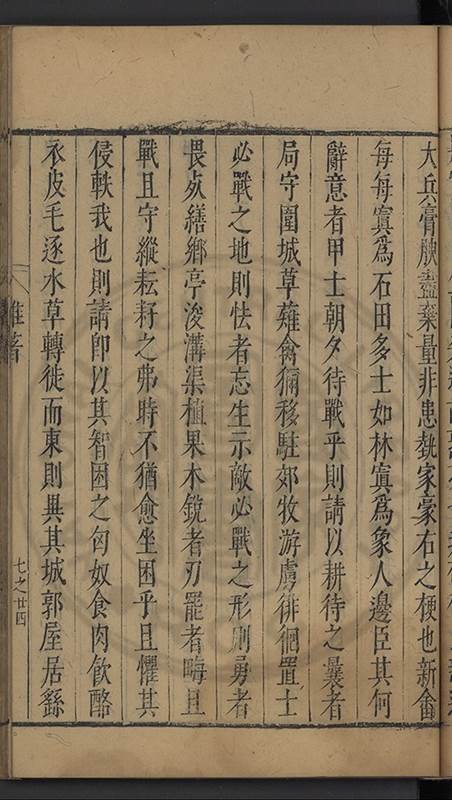 大兵膏腴盡棄量非患埶家豪右之梗也新畬
每每寘爲石田多士如林寘爲象人邊臣其何
辭意者甲士朝夕待戰乎則請以耕待之曩者
局守圍城草薙禽獮移駐郊牧游虜徘徊置士
必戰之地則怯者忘生示敵必戰之形則勇者
畏㱾繕鄉亭浚溝渠植果木銳者刃罷者畮且
戰且守縱耘耔之弗時不猶愈坐困乎且懼其
侵軼我也則請卽以其智困之匈奴食肉飮酪
衣皮毛逐水草轉徙而東則異其城郭屋居繇
雜著
七之廿四